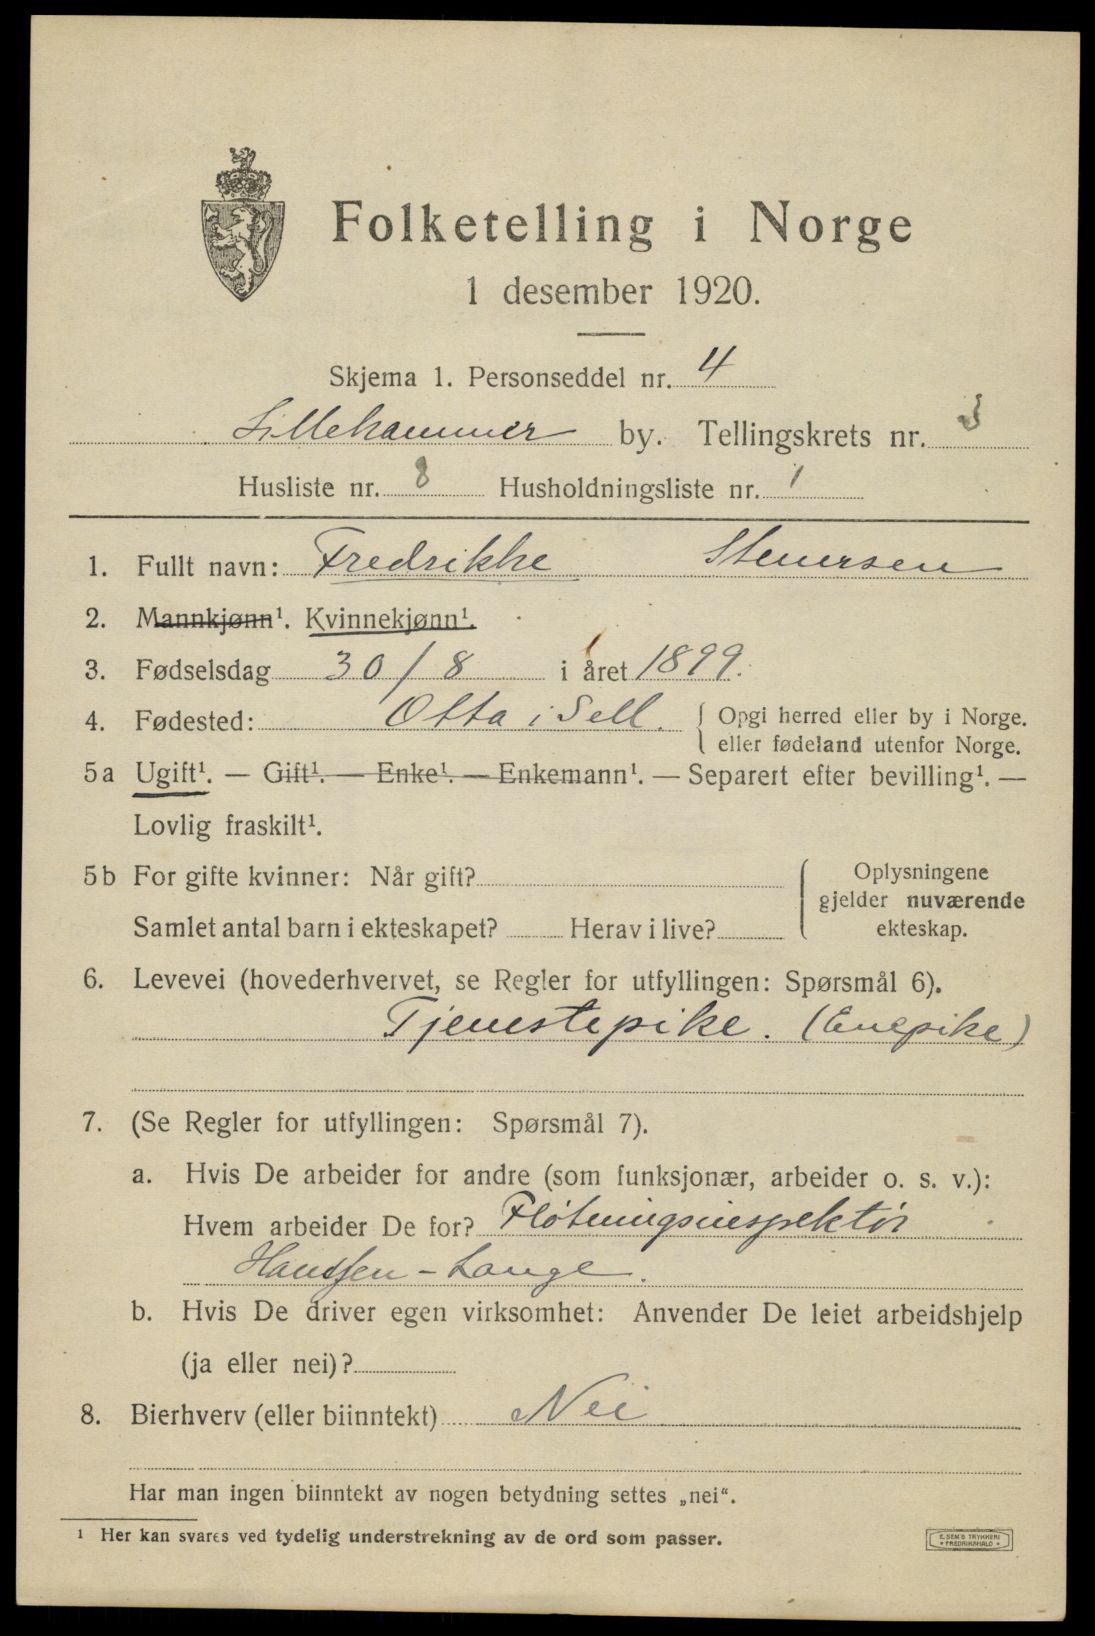 Folketelling i Norge
1 desember 1920.
Skjema 1. Personseddel nr. 4
Lillehammer by. Tellingskrets nr. 3
Husliste nr. 8 Husholdningsliste nr. 1
1. Fullt navn: Fredrikke Stenersen
2. Mannkjønn¹. Kvinnekjønn¹.
3. Fødselsdag 30/8 i året 1899.
4. Fødested: Otta i Sell. { Opgi herred eller by i Norge.
eller fødeland utenfor Norge.
5a Ugift¹. — Gift¹. — Enke¹. — Enkemann¹. — Separert efter bevilling¹. —
Lovlig fraskilt¹.
5b For gifte kvinner: Når gift?
Samlet antal barn i ekteskapet? Herav i live?
Oplysningene
gjelder nuværende
ekteskap.
6. Levevei (hovederhvervet, se Regler for utfyllingen: Spørsmål 6).
Tjenestepike. (Enepike)
7. (Se Regler for utfyllingen: Spørsmål 7).
a. Hvis De arbeider for andre (som funksjonær, arbeider o. s. v.):
Hvem arbeider De for? Fløtningsinspektør
Hanssen-Lange.
b. Hvis De driver egen virksomhet: Anvender De leiet arbeidshjelp
(ja eller nei)?
8. Bierhverv (eller biinntekt) Nei
Har man ingen biinntekt av nogen betydning settes „nei“.
¹ Her kan svares ved tydelig understrekning av de ord som passer.
E. SEM'S TRYKKERI
• FREDRIKSHALD •